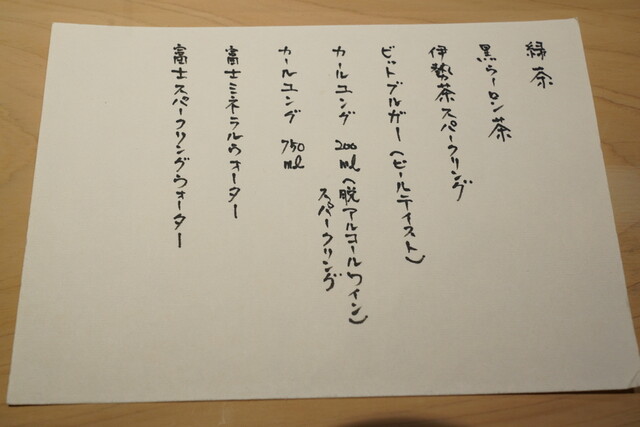 緑茶
黒ウーロン茶
伊勢茶スパークリング
ビットブルガー(ビールテイスト)
カールユング 200ml(脱アルコールワイン)
スパークリング
カールユング 750ml
富士ミネラルウォーター
富士スパークリングウォーター